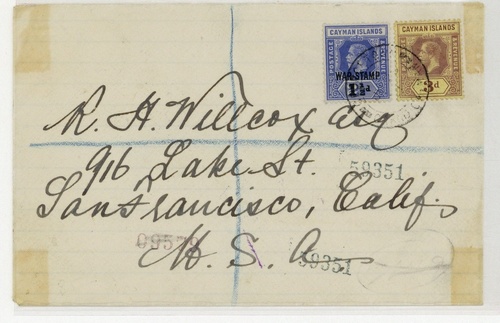 CAYMAN ISLANDS
POSTAGE & REVENUE
WAR STAMP
1½d
CAYMAN ISLANDS
POSTAGE & REVENUE
3d
R. H. Willcox
916 Lake St.
San Francisco, Calif.
U. S. A.
59351
59351